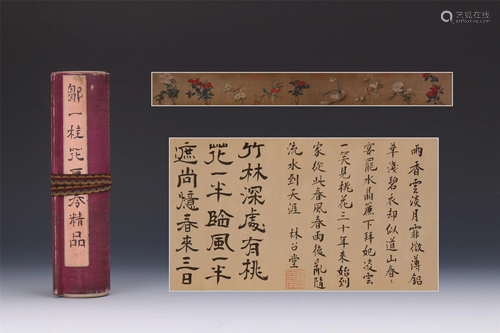 艺狐在线
鄒一桂花卉卷精品
雨香雲淡月霏微薄鉛
華淺碧衣却似道山春
宴罷水晶簾下拜妃凌雲
一笑見桃花三十年來始到
家從此春風春雨後亂隨
流水到天涯 林公堂
竹林深處有桃
花一半臨風一半
遮尚憶春來三日